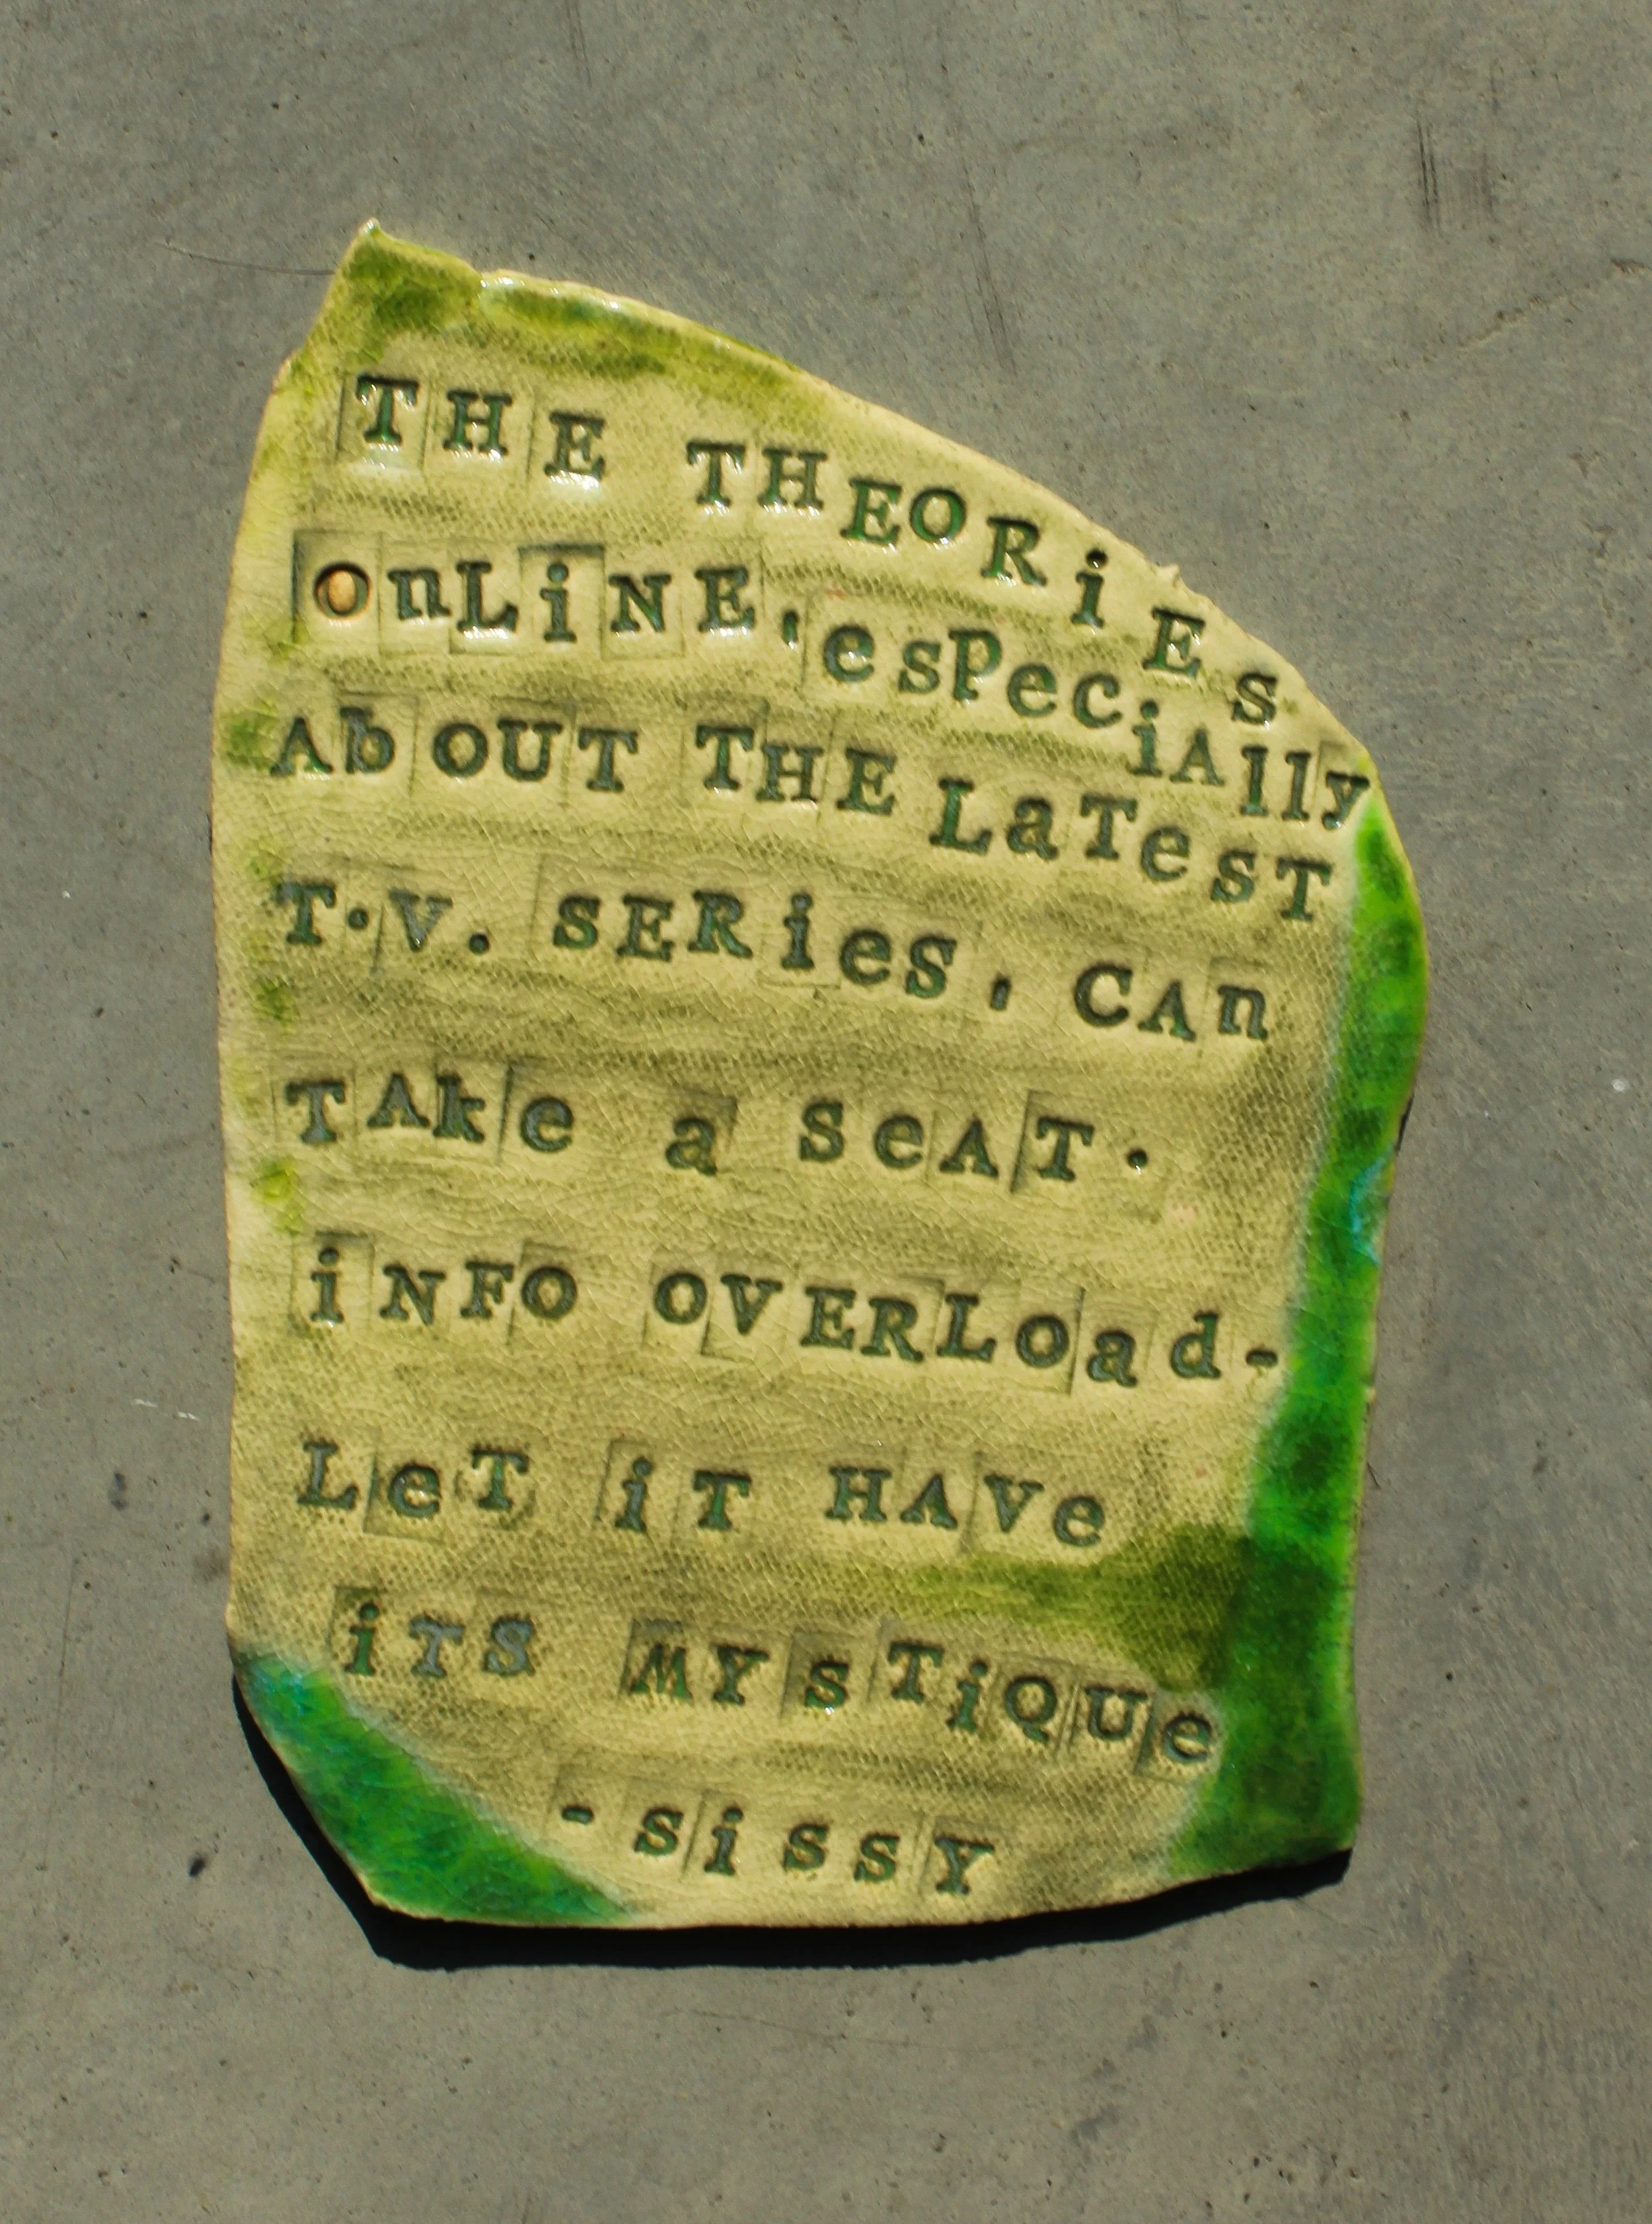 THE THEORiES
onLiNE, esPeciAlly
AbOUT THE LaTesT
T.V. SERieS, CAn
TAke a SeAT.
iNFO OVERLoad-
LeT iT HAVe
iTS MYsTiQUe
-sissY